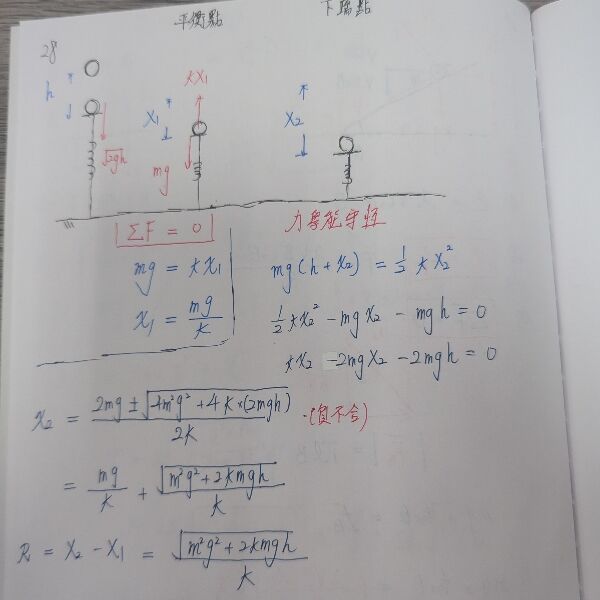 平衡點
下端點
28
h
√2gh
X₁
kX₁
mg
X₂
ΣF = 0
力學能守恆
mg = kx₁
mg(h + x₂) = 1/2 k x₂²
x₁ = mg/k
1/2 kx₂² - mgx₂ - mgh = 0
kx₂ - 2mgx₂ - 2mgh = 0
x₂ = (2mg ± √(4m²g² + 4k×(2mgh)))/2k (負不合)
= mg/k + √(m²g² + 2kmgh)/k
R = X₂ - X₁ = √(m²g² + 2kmgh)/k